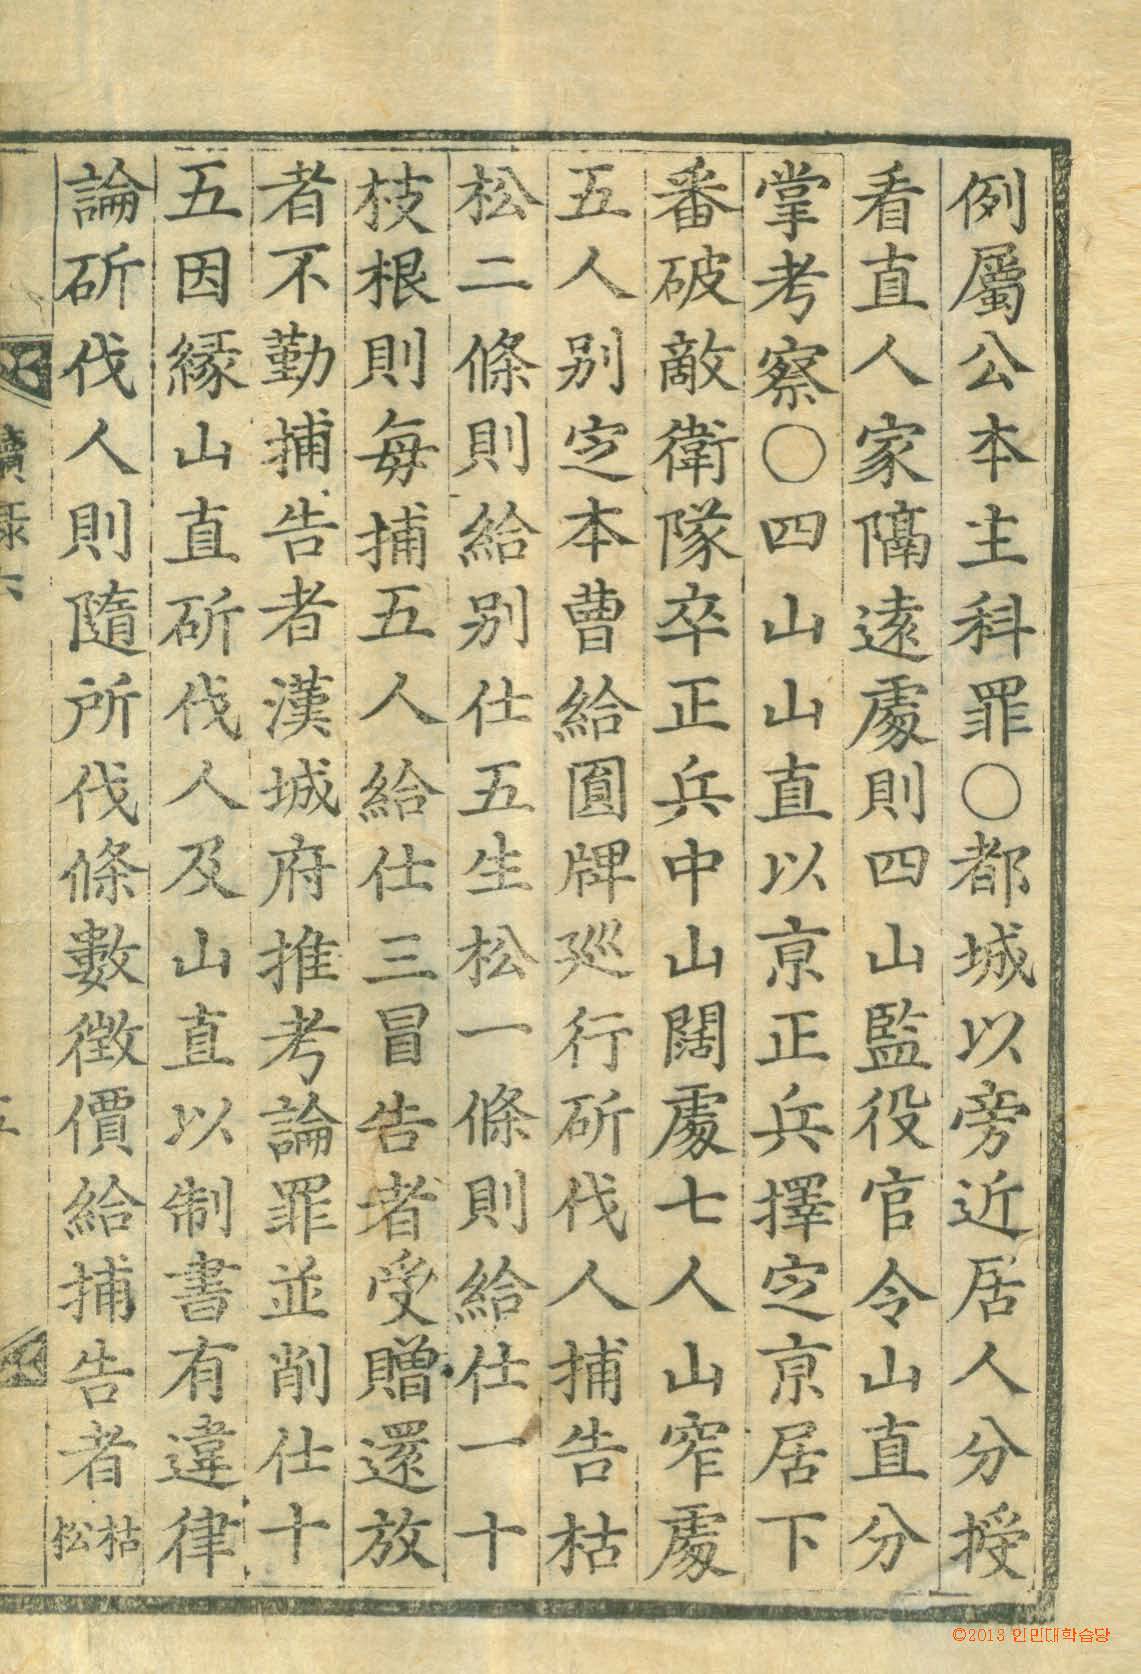 例屬公本主科罪○都城以旁近居人分授
看直人家隔遠處則四山監役官令山直分
掌考察○四山山直以京正兵擇定京居下
番破敵衛隊卒正兵中山闊處七人山窄處
五人別定本曹給圓牌廵行斫伐人捕告枯
松二條則給別仕五生松一條則給仕一十
枝根則每捕五人給仕三冒告者受贈還放
者不勤捕告者漢城府推考論罪並削仕十
五因緣山直斫伐人及山直以制書有違律
論斫伐人則隨所伐條數徵價給捕告者枯松
©2013 인민대학습당